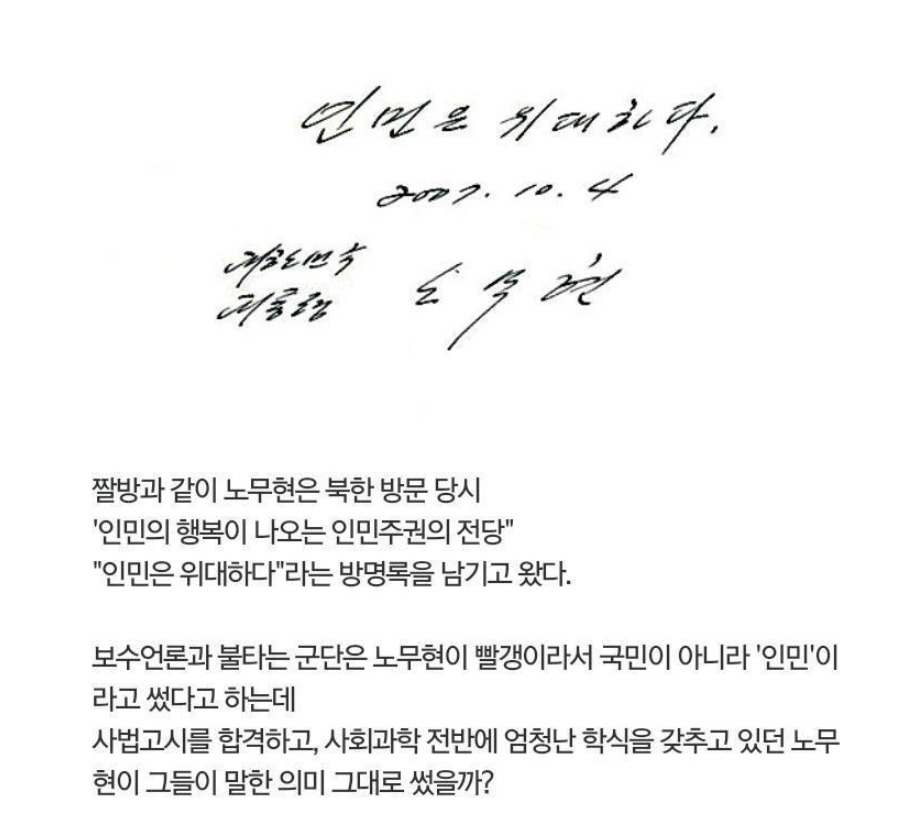 인민은 위대하다.
2007. 10. 4
대한민국
대통령 노무현
짤방과 같이 노무현은 북한 방문 당시
'인민의 행복이 나오는 인민주권의 전당"
"인민은 위대하다"라는 방명록을 남기고 왔다.
보수언론과 불타는 군단은 노무현이 빨갱이라서 국민이 아니라 '인민'이
라고 썼다고 하는데
사법고시를 합격하고, 사회과학 전반에 엄청난 학식을 갖추고 있던 노무
현이 그들이 말한 의미 그대로 썼을까?